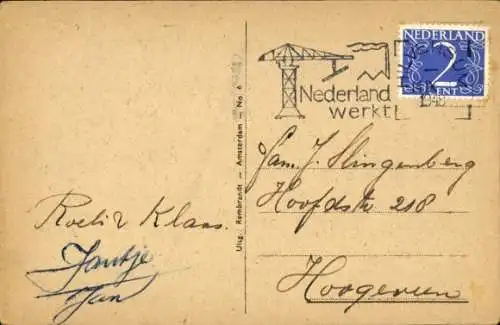 NEDERLAND
2
CENT
1948
Nederland
werkt
Fam. J. Slingenberg
Hoofdstr 218
Hoogeveen
Roeli & Klaas.
Jantje
Jan
Uitg. Rembrandt — Amsterdam — No. 6